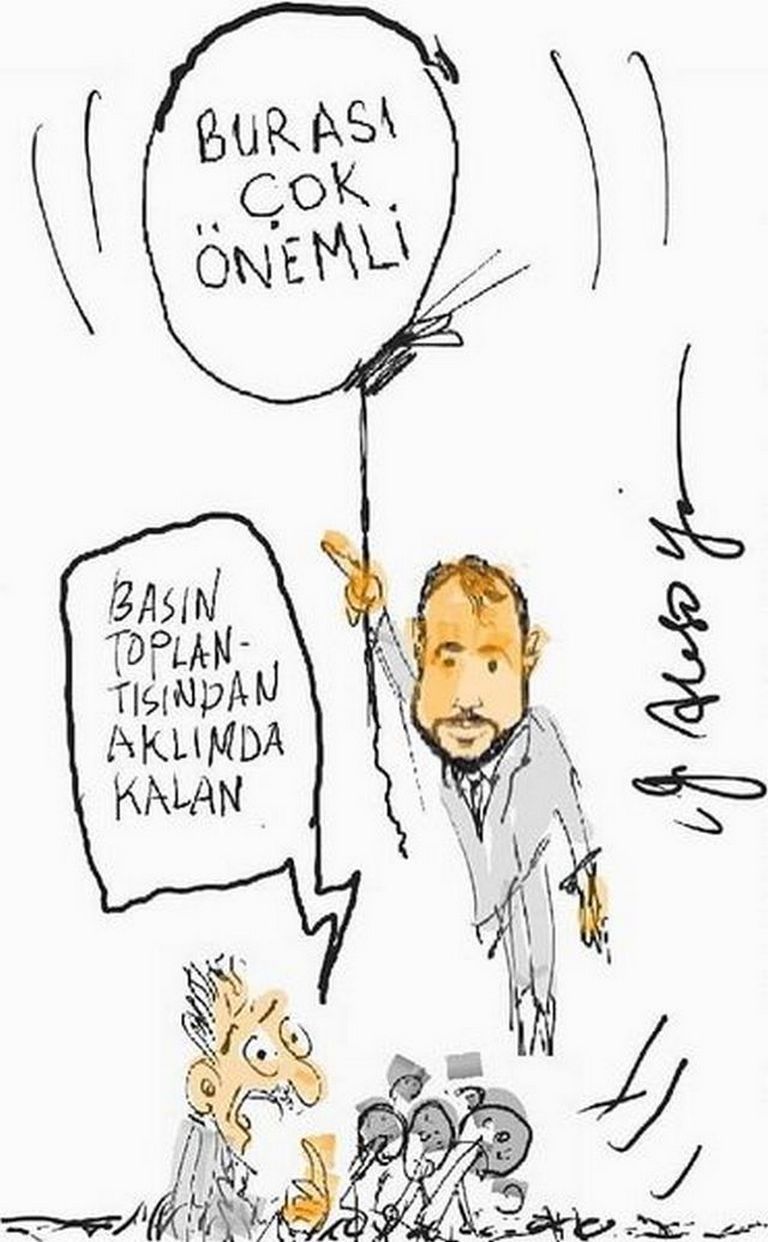 BURASI
ÇOK
ÖNEMLİ
BASIN
TOPLAN-
TISINDAN
AKLIMDA
KALAN